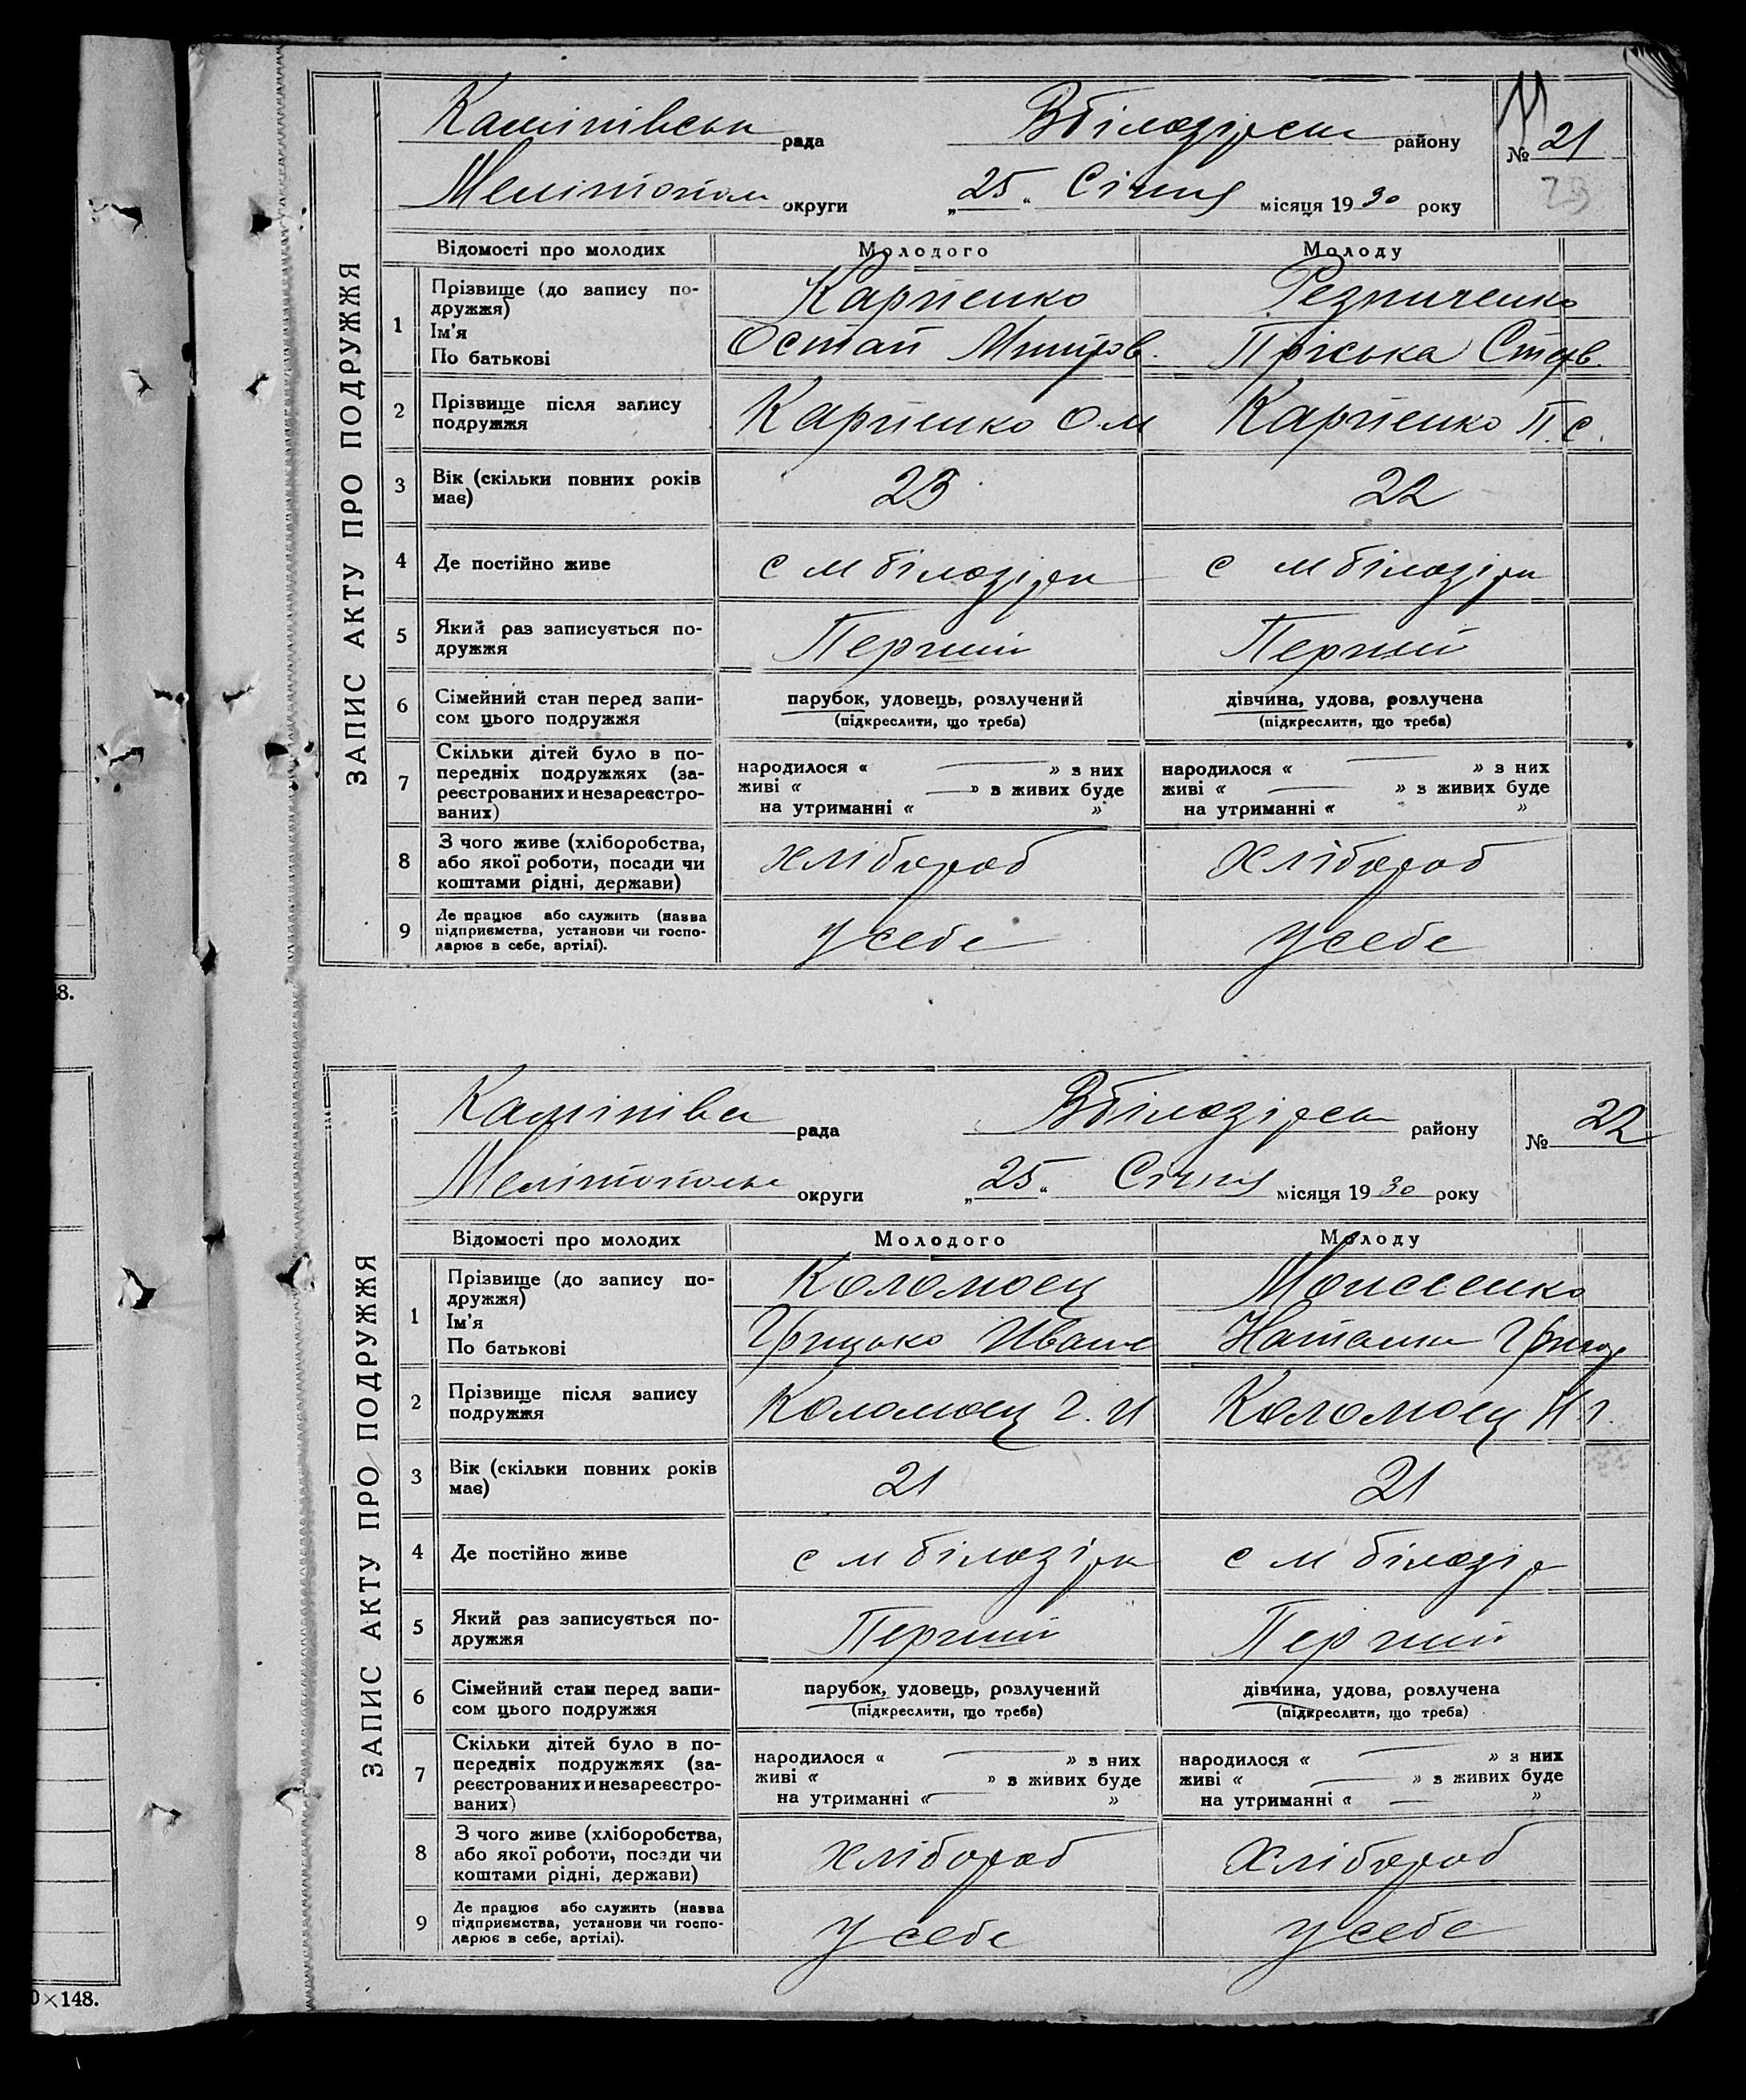 ЗАПИС АКТУ ПРО ПОДРУЖЖЯ
рада
Вбілозірськ району
№ 21
Мелітопол округи
„25“ Січня місяця 1930 року
Відомості про молодих
Молодого
Молоду
1
Прізвище (до запису по-
дружжя)
Ім'я
По батькові
Карпенко
Остап
Резниченко
Пріська Стеф.
2
Прізвище після запису
подружжя
Карпенко О.М
Карпенко П.С.
3
Вік (скільки повних років
має)
23
22
4
Де постійно живе
с м білозірки
с м білозірки
5
Який раз записується по-
дружжя
Перший
Перший
6
Сімейний стан перед запи-
сом цього подружжя
парубок, удовець, розлучений
(підкреслити, що треба)
дівчина, удова, розлучена
(підкреслити, що треба)
7
Скільки дітей було в по-
передніх подружжях (за-
реєстрованих и незареєстро-
ваних)
народилося « — » з них
живі « — » в живих буде
на утриманні « »
народилося « — » з них
живі « — » з живих буде
на утриманні « »
8
З чого живе (хліборобства,
або якої роботи, посади чи
коштами рідні, держави)
хлібороб
хлібороб
9
Де працює або служить (назва
підприємства, установи чи госпо-
дарює в себе, артілі).
у себе
у себе
8.
ЗАПИС АКТУ ПРО ПОДРУЖЖЯ
рада
Вбілозірськ району
№ 22
Мелітопольс округи
„25“ Січня місяця 1930 року
Відомості про молодих
Молодого
Молоду
1
Прізвище (до запису по-
дружжя)
Ім'я
По батькові
Коломоец
Грицько Иванов
Моисеенко
Наталия Григор
2
Прізвище після запису
подружжя
Коломоец Г.И
Коломоец Н.Г.
3
Вік (скільки повних років
має)
21
21
4
Де постійно живе
с м білозірки
с м білозір
5
Який раз записується по-
дружжя
Перший
Перший
6
Сімейний стан перед запи-
сом цього подружжя
парубок, удовець, розлучений
(підкреслити, що треба)
дівчина, удова, розлучена
(підкреслити, що треба)
7
Скільки дітей було в по-
передніх подружжях (за-
реєстрованих и незареєстро-
ваних)
народилося « — » з них
живі « » в живих буде
на утриманні « — »
народилося « — » з них
живі « — » з живих буде
на утриманні « — »
8
З чого живе (хліборобства,
або якої роботи, посади чи
коштами рідні, держави)
хлібороб
хлібороб
9
Де працює або служить (назва
підприємства, установи чи госпо-
дарює в себе, артілі).
у себе
у себе
×148.